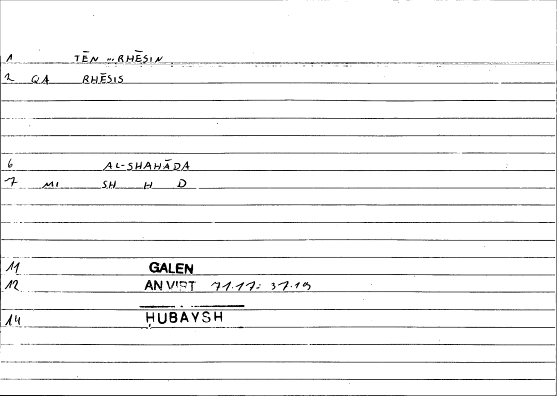 1 TĒN ... RHĒSIN
2 QA RHĒSIS
6 AL-SHAHĀDA
7 MI SH H D
11 GALEN
12 AN VIRT 71.17: 37.19
14 ḤUBAYSH